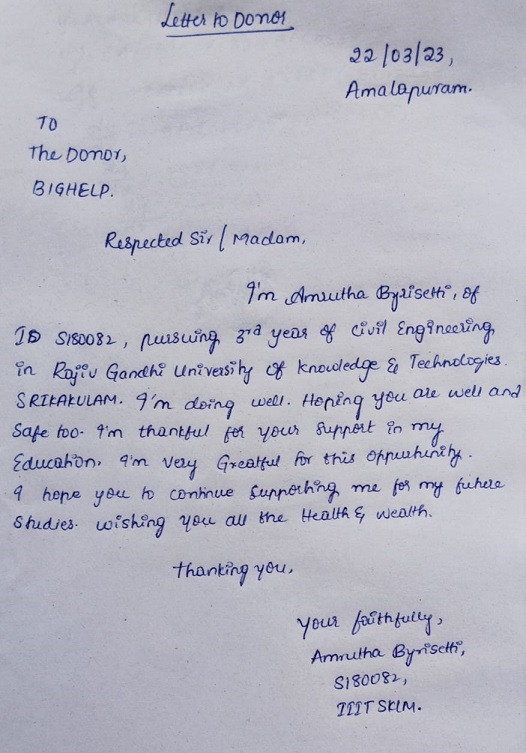 Letter to Donor
22/03/23,
Amalapuram.
TO
The Donor,
BIGHELP.
Respected Sir / Madam,
I'm Amrutha Byrisetti, of
ID S180082, pursuing 3rd year of Civil Engineering
in Rajiv Gandhi University of Knowledge & Technologies.
SRIKAKULAM. I'm doing well. Hoping you are well and
Safe too. I'm thankful for your Support in my
Education. I'm very Greatful for this oppurtunity.
I hope you to continue Supporting me for my future
Studies. wishing you all the Health & Wealth.
Thanking you,
Your faithfully,
Amrutha Byrisetti,
S180082,
IIIT SKLM.